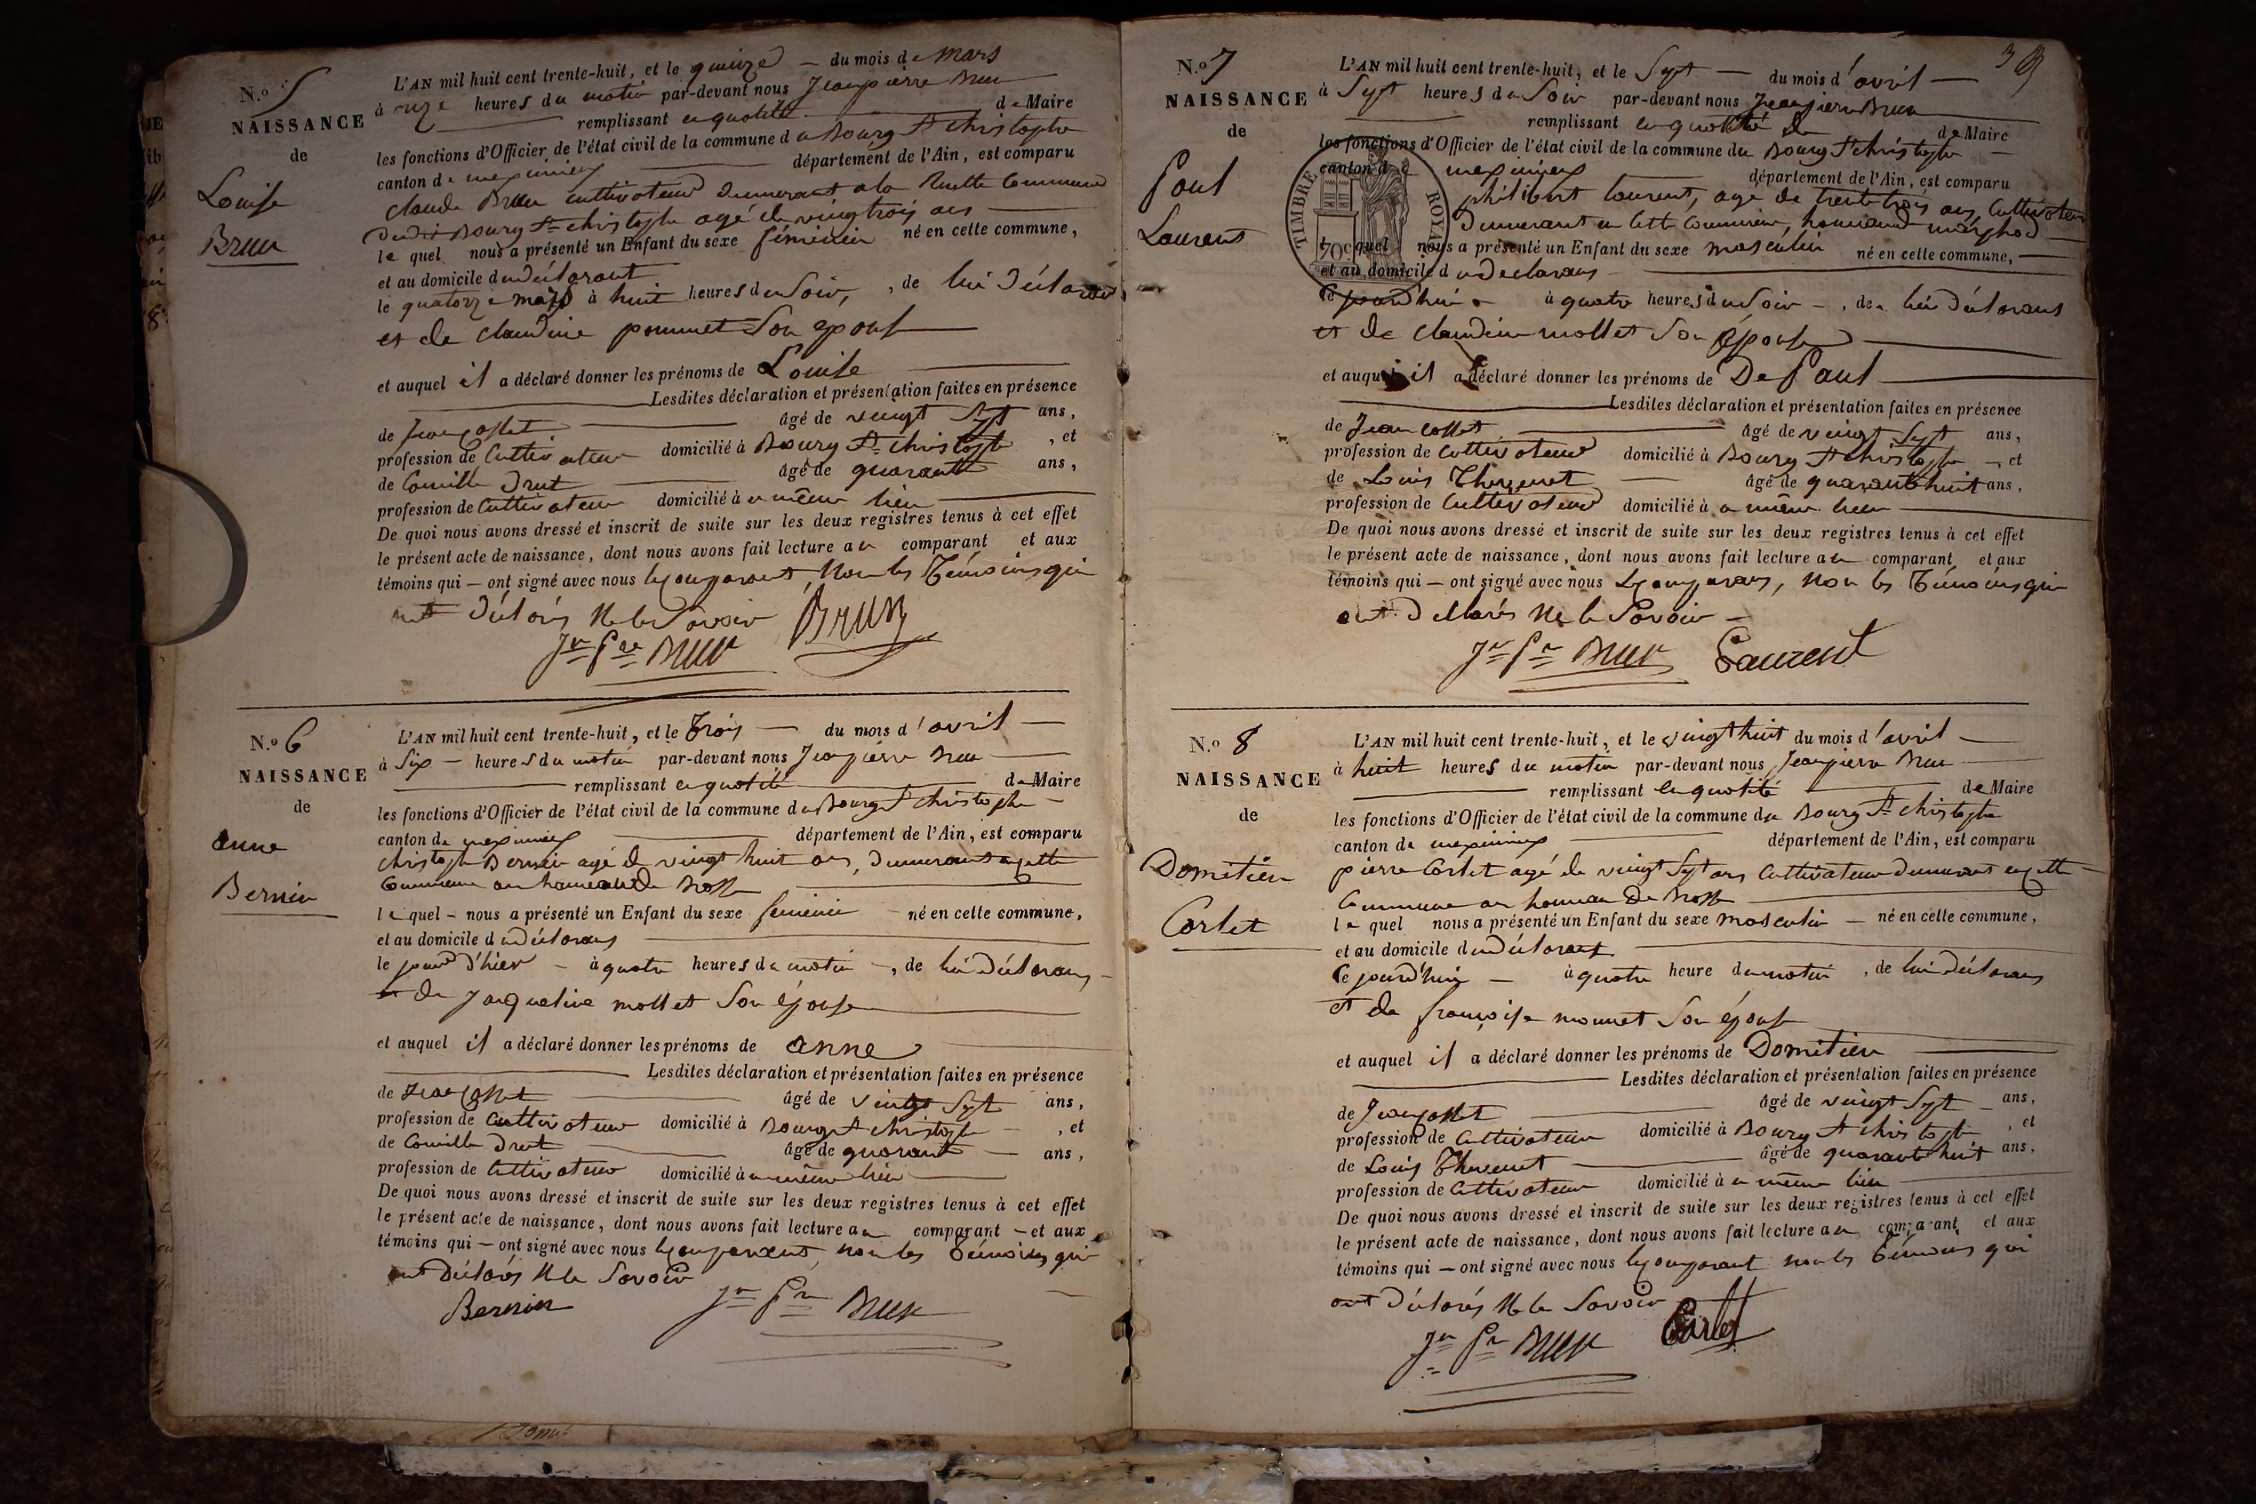 N.o 5
NAISSANCE
de
Louise
Brun
L'AN mil huit cent trente-huit, et le quinze — du mois de Mars
à onze heures du matin par-devant nous Jean pierre Brun
remplissant en qualité de Maire
les fonctions d'Officier de l'état civil de la commune du Bourg St christophe
canton de meximieux département de l'Ain, est comparu
claude Brun cultivateur demeurant a la Ruette Commune
dudit Bourg St christophe agé de vingtrois ans
le quel nous a présenté un Enfant du sexe féminin né en cette commune,
et au domicile du déclarant
le quatorze mars à huit heures du Soir, , de lui déclarant
et de claudine pommet Son epouse
et auquel il a déclaré donner les prénoms de Louise
Lesdites déclaration et présentation faites en présence
de Jean Collet âgé de vingt Sept ans,
profession de Cultivateur domicilié à Bourg St christophe , et
de Camille Drut âgé de quarante ans,
profession de Cultivateur domicilié à u même lieu
De quoi nous avons dressé et inscrit de suite sur les deux registres tenus à cet effet
le présent acte de naissance, dont nous avons fait lecture au comparant et aux
témoins qui — ont signé avec nous le comparant, Non les Témoins qui
ont déclarés Ne le Savoir BRUN
Jn Pre Brun
N.o 6
NAISSANCE
de
anne
Bernin
L'AN mil huit cent trente-huit, et le Trois — du mois d'avril —
à Six — heures du matin par-devant nous Jean pierre Brun
remplissant en qualité de Maire
les fonctions d'Officier de l'état civil de la commune du Bourg St christophe —
canton de meximieux département de l'Ain, est comparu
christophe Bernin agé de vingt huit ans, demeurant en cette
Commune au hameau de
le quel — nous a présenté un Enfant du sexe féminin — né en cette commune,
et au domicile du déclarant
le jour d'hier — à quatre heures du matin —, de lui déclarant —
et de Jacqueline mollet Son épouse
et auquel il a déclaré donner les prénoms de anne
Lesdites déclaration et présentation faites en présence
de Jean Collet âgé de vingt Sept ans,
profession de Cultivateur domicilié à Bourg St christophe — , et
de Camille Drut âgé de quarante — ans,
profession de Cultivateur domicilié à u même lieu
De quoi nous avons dressé et inscrit de suite sur les deux registres tenus à cet effet
le présent acte de naissance, dont nous avons fait lecture au comparant — et aux
témoins qui — ont signé avec nous le comparant, non les Témoins, qui
ont déclarés Ne le Savoir
Bernin Jn Pre Brun
N.o 7
NAISSANCE
de
Paul
Laurent
L'AN mil huit cent trente-huit, et le Sept — du mois d'avril —
à Sept heures du Soir par-devant nous Jean pierre Brun
remplissant en qualité de de Maire
les fonctions d'Officier de l'état civil de la commune du Bourg St christophe —
canton de meximieux département de l'Ain, est comparu
philibert Laurent, agé de trente trois ans, Cultivateur
demeurant en cette Commune, hameau de
le quel nous a présenté un Enfant du sexe masculin né en cette commune,
et au domicile du déclarant
TIMBRE ROYAL
70c
Ce jourd'hui à quatre heures du Soir —, de lui déclarant
et de claudine mollet Son épouse
et auquel il a déclaré donner les prénoms de De Paul
Lesdites déclaration et présentation faites en présence
de Jean Collet âgé de vingt Sept ans,
profession de Cultivateur domicilié à Bourg St christophe —, et
de Louis Thevenet — âgé de quarante huit ans,
profession de Cultivateur domicilié à u même lieu
De quoi nous avons dressé et inscrit de suite sur les deux registres tenus à cet effet
le présent acte de naissance, dont nous avons fait lecture au comparant et aux
témoins qui — ont signé avec nous Le comparant, non les Témoins qui
ont déclarés Ne le Savoir —
Jn Pre Brun Laurent
N.o 8
NAISSANCE
de
Domitien
Corlet
L'AN mil huit cent trente-huit, et le vingt huit du mois d'avril —
à huit heures du matin par-devant nous Jean pierre Brun
remplissant en qualité de Maire
les fonctions d'Officier de l'état civil de la commune du Bourg St christophe
canton de meximieux département de l'Ain, est comparu
pierre Corlet agé de vingt Sept ans Cultivateur demeurant en cette —
Commune au hameau de
le quel nous a présenté un Enfant du sexe masculin — né en cette commune,
et au domicile du déclarant
Ce jourd'hui — à quatre heure du matin , de lui déclarant
et de françoise monnet Son épouse
et auquel il a déclaré donner les prénoms de Domitien
Lesdites déclaration et présentation faites en présence
de Jean Collet âgé de vingt Sept — ans,
profession de Cultivateur domicilié à Bourg St christophe , et
de Louis Thevenet âgé de quarante huit ans,
profession de Cultivateur domicilié à u même lieu
De quoi nous avons dressé et inscrit de suite sur les deux registres tenus à cet effet
le présent acte de naissance, dont nous avons fait lecture au comparant et aux
témoins qui — ont signé avec nous le comparant non les Témoins qui
ont déclarés Ne le Savoir
Jn Pre Brun Corlet